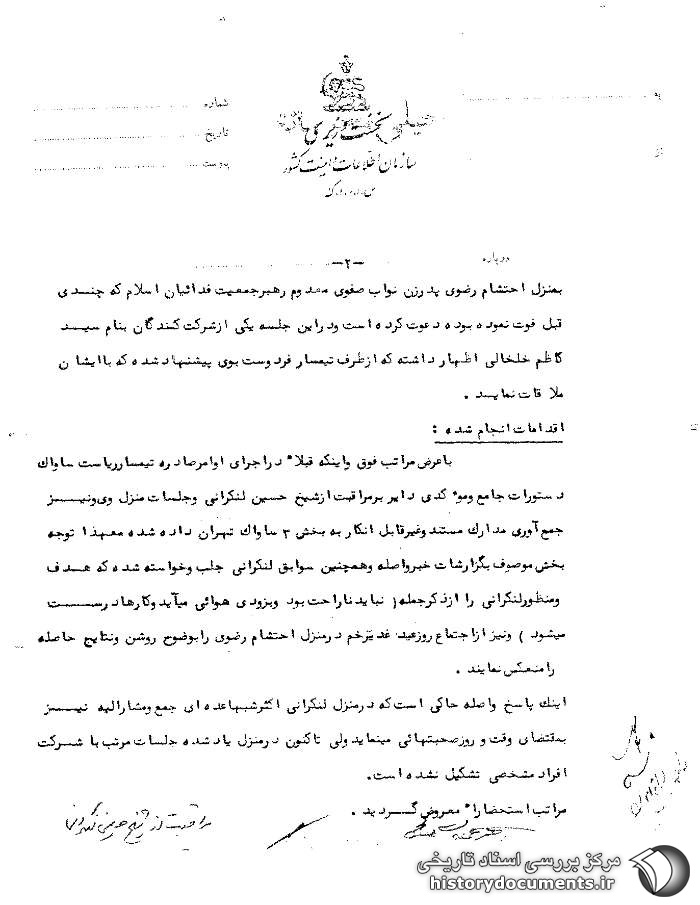 به
شماره
تاریخ
پیوست
از
خیلی
نخست وزیری
سازمان اطلاعات و امنیت کشور
س.ا.و.ا.ک
درباره
-۲-
بمنزل احتشام رضوی پدرزن نواب صفوی معدوم رهبرجمعیت فدائیان اسلام که چندی
قبل فوت نموده بوده دعوت کرده است ودراین جلسه یکی ازشرکت کنندگان بنام سید
کاظم خلخالی اظهار داشته که ازطرف تیمسار فردوست بوی پیشنهاد شده که باایشان
ملاقات نماید .
اقدامات انجام شده :
باعرض مراتب فوق واینکه قبلا" دراجرای اوامرصادره تیمسارریاست ساواک
دستورات جامع وموکدی دایر برمراقبت ازشیخ حسین لنکرانی وجلسات منزل وی ونیز
جمع آوری مدارک مستند وغیرقابل انکار به بخش ۳ ساواک تهران داده شده معهذا توجه
بخش موصوف بگزارشات خبرواصله وهمچنین سوابق لنکرانی جلب وخواسته شده که هدف
ومنظورلنکرانی را ازذکرجمله( نباید ناراحت بود وبزودی هوائی میآید وکارها درست
میشود ) ونیز ازاجتماع روزعید غدیرخم درمنزل احتشام رضوی رابوضوح روشن ونتایج حاصله
رامنعکس نمایند .
اینک پاسخ واصله حاکی است که درمنزل لنکرانی اکثرشبها عده ای جمع ومشارالیه نیز
بمقتضای وقت و روز صحبتهائی مینماید ولی تاکنون درمنزل یاد شده جلسات مرتب با شرکت
افراد مشخصی تشکیل نشده است.
مراتب استحضارا" معروض گردید .
مراقبت از شیخ حسین لنکرانی
مرکز بررسی اسناد تاریخی
historydocuments.ir